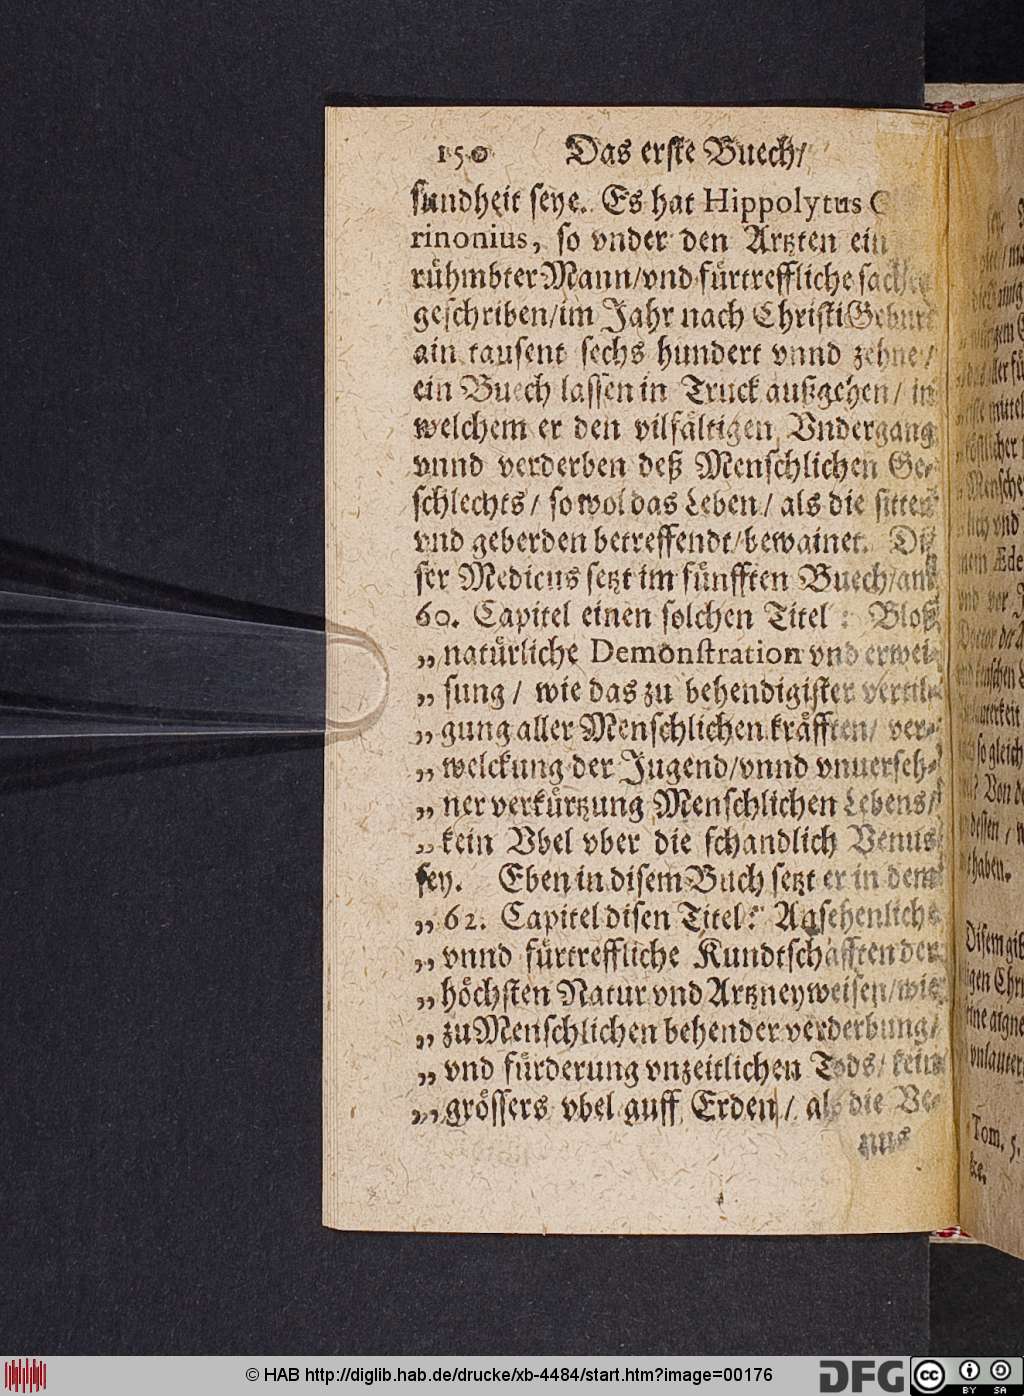 150 Das erste Buech/
sundheit seye. Es hat Hippolytus G
rinonius, so vnder den Artzten ein
rühmbter Mann/vnd fürtreffliche sachen
geschriben/im Jahr nach Christi Geburt
ain tausent sechs hundert vnnd zehne/
ein Buech lassen in Truck außgehen/ in
welchem er den vilfältigen Vndergang
vnnd verderben deß Menschlichen Ge-
schlechts/ so wol das Leben/ als die sitten
vnd geberden betreffendt/bewainet. Di-
ser Medicus setzt im fünfften Buech/am
60. Capitel einen solchen Titel : Bloß
„ natürliche Demonstration vnd erwei-
„ sung / wie das zu behendigister vertil-
„ gung aller Menschlichen kräfften/ ver-
„ welckung der Jugend/vnnd vnuerseh-
„ ner verkürtzung Menschlichen Lebens/
„ kein Vbel vber die schandlich Venus
sey. Eben in disem Buch setzt er in dem
„ 62. Capitel disen Titel: Ansehenliche
„ vnnd fürtreffliche Kundtschafften der
„ höchsten Natur vnd Artzneyweisen/wie
„ zu Menschlichen behender verderbung/
„ vnd fürderung vnzeitlichen Tods/ kein
„ grössers vbel auff Erden/ als die Ve-
nus
Disem gib
gen Chri
Tom. 5.
&c.
© HAB http://diglib.hab.de/drucke/xb-4484/start.htm?image=00176
DFG
cc BY SA